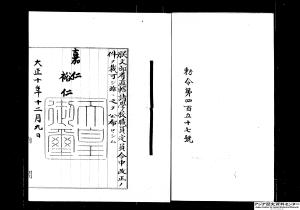 勅令第四百五十七號
朕文部省直轄諸學校職員定員令中改正ノ
件ヲ裁可シ茲ニ之ヲ公布セシム
嘉仁
裕仁
天皇
御璽
大正十年十二月九日
アジア歴史資料センター